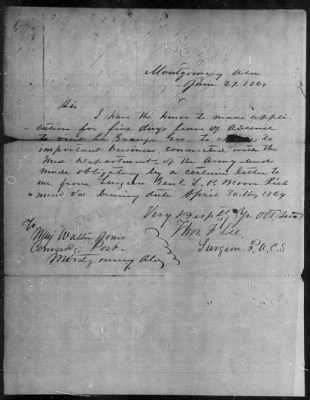 Montgomery Ala
June 27. 1864
Sir
I have the honor to make appli-
cation for five days leave of absence
to visit La Grange Geo. To attend to
important business connected with the
Med Department of the Army and
made obligatory by a certain letter to
me from Surgeon Genl S. P. Moore Rich
mond Va. bearing date April 30th, 1864
Very Respfly Yr obt Servt
Thos. F. Lee
Surgeon P.A.C.S
To
Maj Walter Jones
Comdg Post
Montgomery Ala